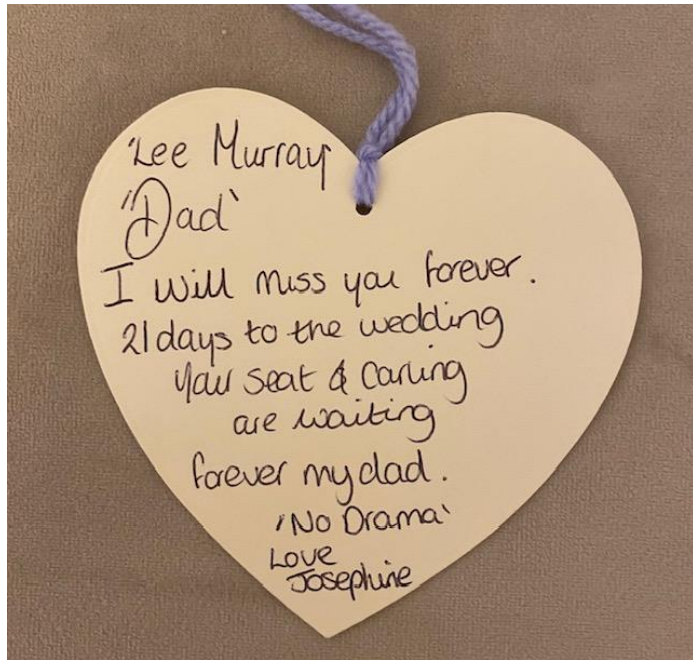 'Lee Murray
"Dad'
I will miss you forever.
21 days to the wedding
your seat & Carling
are waiting
forever my dad.
'No Drama'
Love
Josephine